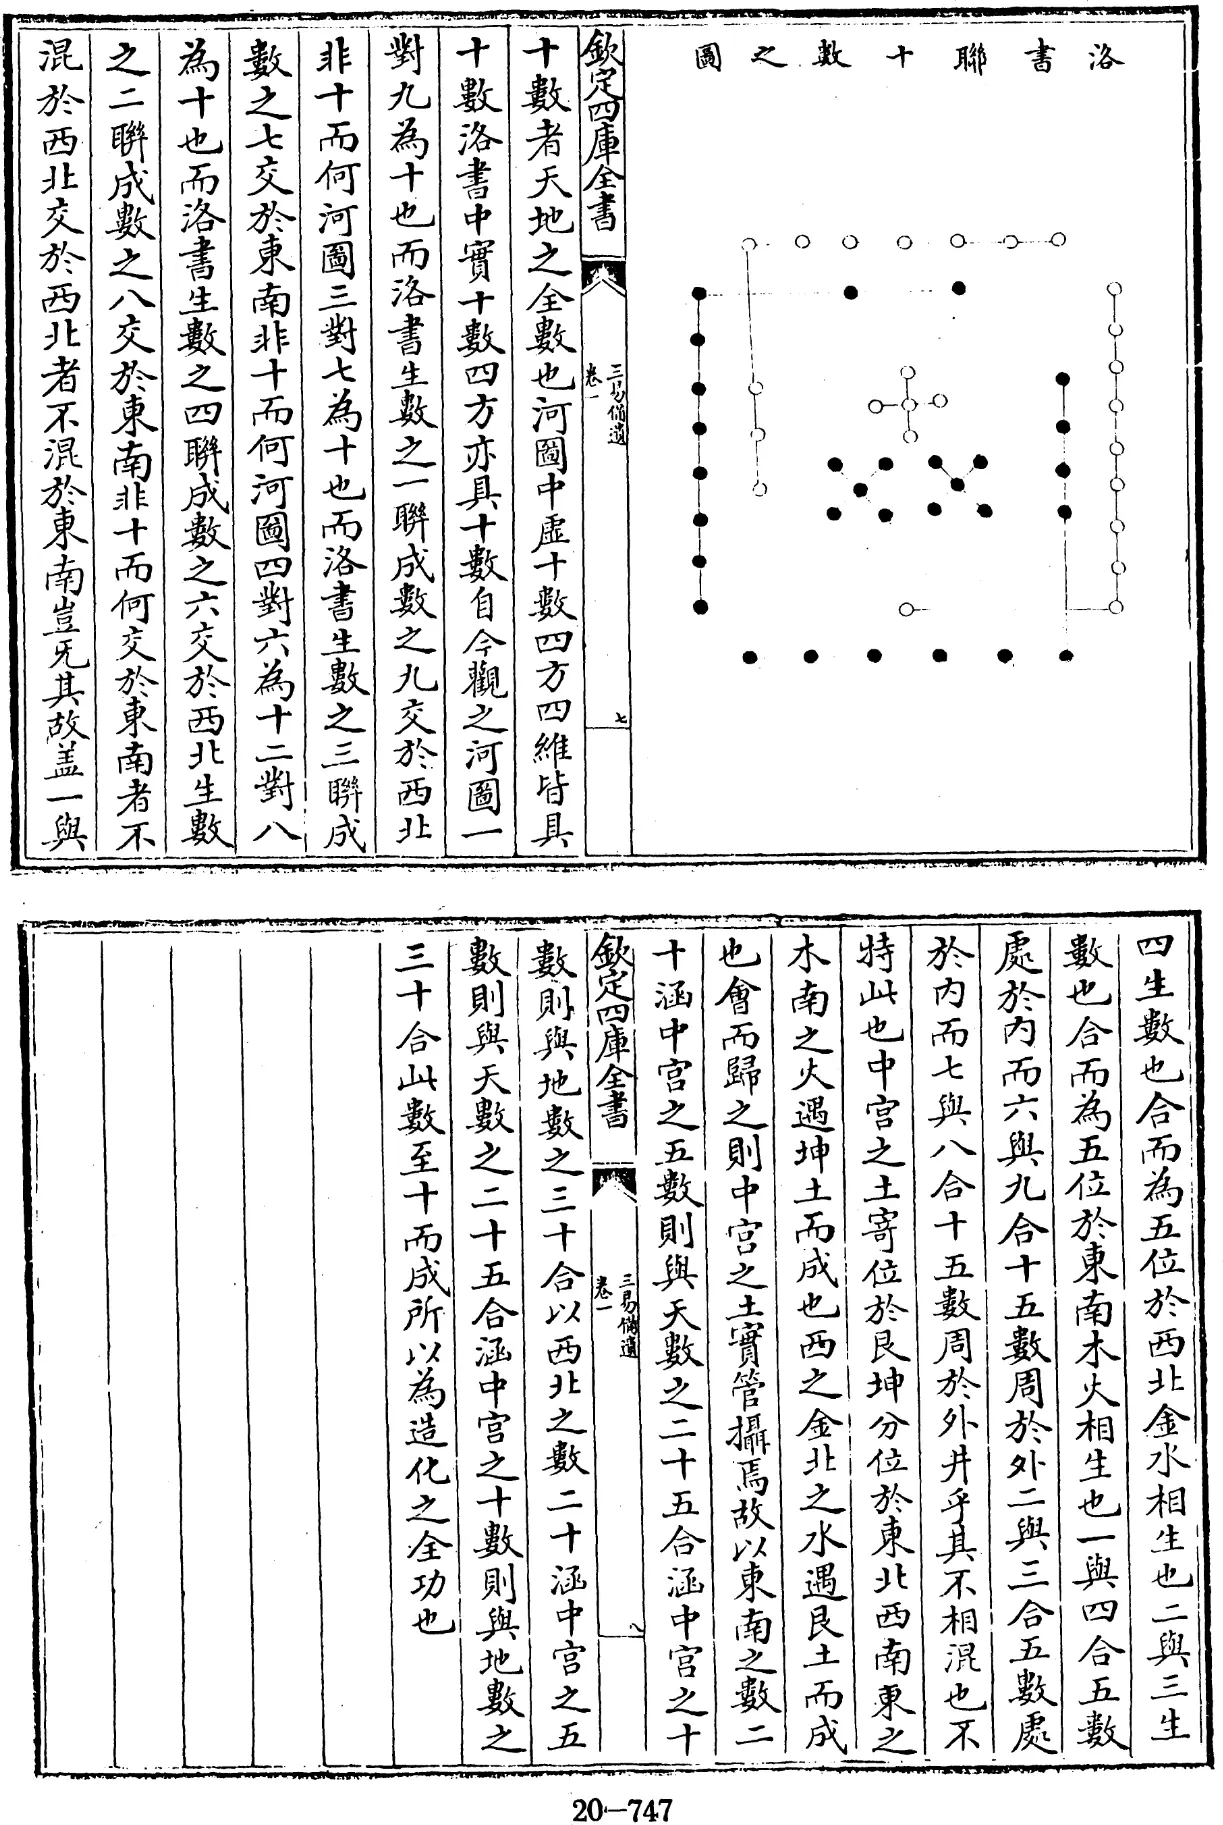 洛書聯十數之圖
欽定四庫全書
三易備遺
卷一
七
十數者天地之全數也河圖中虛十數四方四維皆具
十數洛書中實十數四方亦具十數自今觀之河圖一
對九為十也而洛書生數之一聨成數之九交於西北
非十而何河圖三對七為十也而洛書生數之三聨成
數之七交於東南非十而何河圖四對六為十二對八
為十也而洛書生數之四聨成數之六交於西北生數
之二聨成數之八交於東南非十而何交於東南者不
混於西北交於西北者不混於東南豈旡其故盖一與
四生數也合而為五位於西北金水相生也二與三生
數也合而為五位於東南木火相生也一與四合五數
處於内而六與九合十五數周於外二與三合五數處
於内而七與八合十五數周於外井乎其不相混也不
特此也中宫之土寄位於艮坤分位於東北西南東之
木南之火遇坤土而成也西之金北之水遇艮土而成
也會而歸之則中宫之土實管攝焉故以東南之數二
十涵中宫之五數則與天數之二十五合涵中宫之十
欽定四庫全書
三易備遺
卷一
八
數則與地數之三十合以西北之數二十涵中宫之五
數則與天數之二十五合涵中宫之十數則與地數之
三十合此數至十而成所以為造化之全功也
20-747